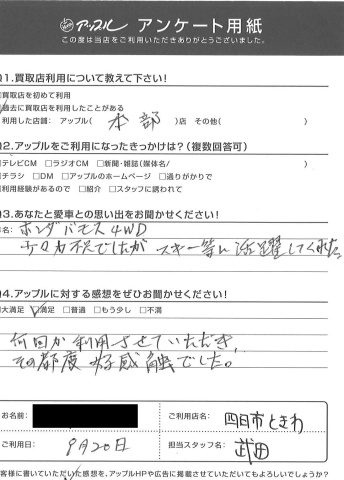 アップル アンケート用紙
この度は当店をご利用いただきありがとうございました。
1.買取店利用について教えて下さい!
買取店を初めて利用
過去に買取店を利用したことがある
利用した店舗: アップル( 本部 )店 その他( )
2.アップルをご利用になったきっかけは?(複数回答可)
テレビCM □ラジオCM □新聞・雑誌(媒体名/ )
チラシ □DM □アップルのホームページ □通りがかりで
利用経験があるので □紹介 □スタッフに誘われて
3.あなたと愛車との思い出をお聞かせください!
名: ホンダバモス4WD
少々力不足でしたが スキー等に活躍してくれた
4.アップルに対する感想をぜひお聞かせください!
大満足 □満足 □普通 □もう少し □不満
何回か利用させていただき、
その都度 好感触でした。
お名前:
ご利用店名: 四日市ときわ
ご利用日: 9月20日
担当スタッフ名: 武田
客様に書いていただいた感想を、アップルHPや広告に掲載させていただいてもよろしいでしょうか?